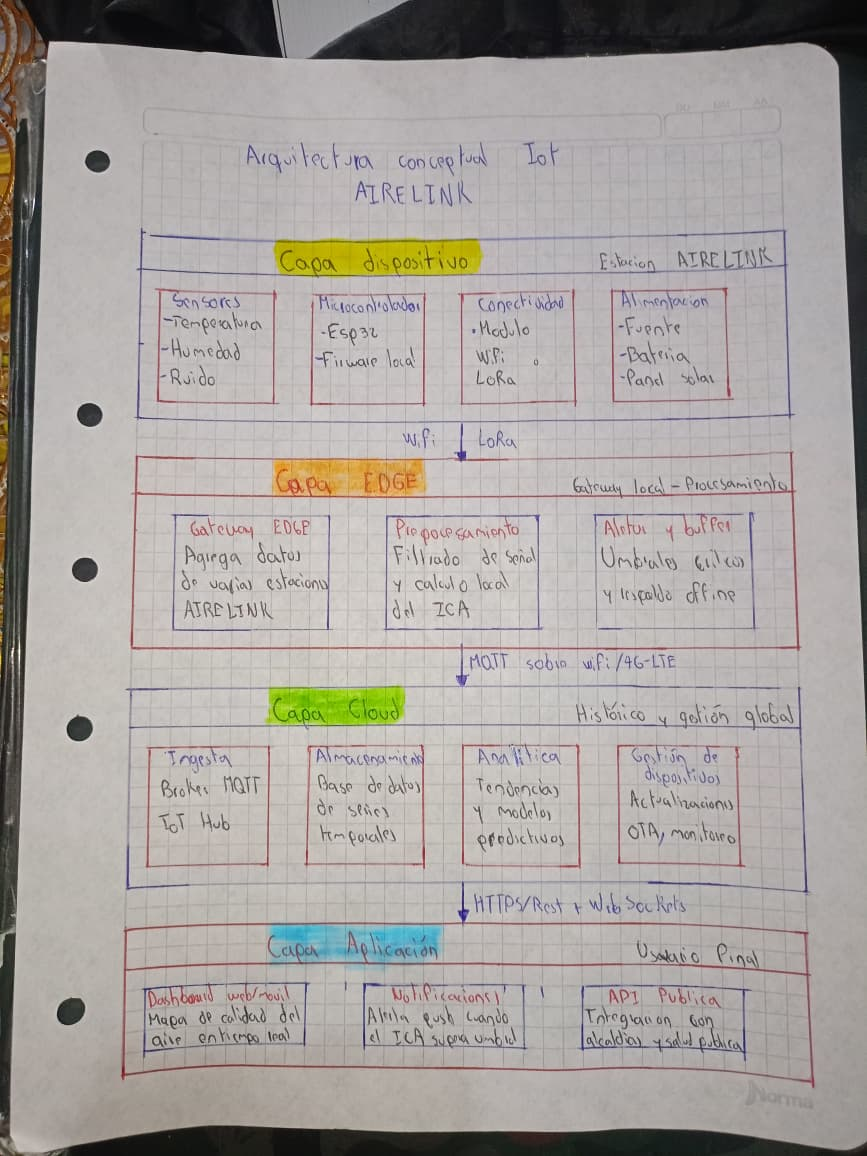 Arquitectura conceptual Iot
AIRELINK
Capa dispositivo
Estacion AIRELINK
Sensores
-Temperatura
-Humedad
-Ruido
Microcontrolador
-Esp32
-Firware local
Conectividad
•Modulo
Wifi
LoRa
Alimentacion
-Fuente
-Bateria
-Panel solar
Wifi LoRa
Capa EDGE
Gateway local - Procesamiento
Gateway EDGE
Agrega datos
de varias estaciones
AIRELINK
Prepocesamiento
Filtrado de señal
y calculo local
del ICA
y buffer
Umbrales criticos
y respaldo offine
MQTT sobre wifi/4G-LTE
Capa Cloud
Histórico y gestión global
Ingesta
Broker MQTT
IoT Hub
Almacenamiento
Base de datos
de series
temporales
Analitica
Tendencias
y modelos
predictivos
Gestión de
dispositivos
Actualizaciones
OTA, monitoreo
HTTPS/Rest + Web Sockets
Capa Aplicación
Usuario Final
Dashboard web/movil
Mapa de calidad del
aire en tiempo real
Notificaciones
Alerta push cuando
el ICA supera umbral
API Publica
Integracion con
alcaldias y salud publica
Norma